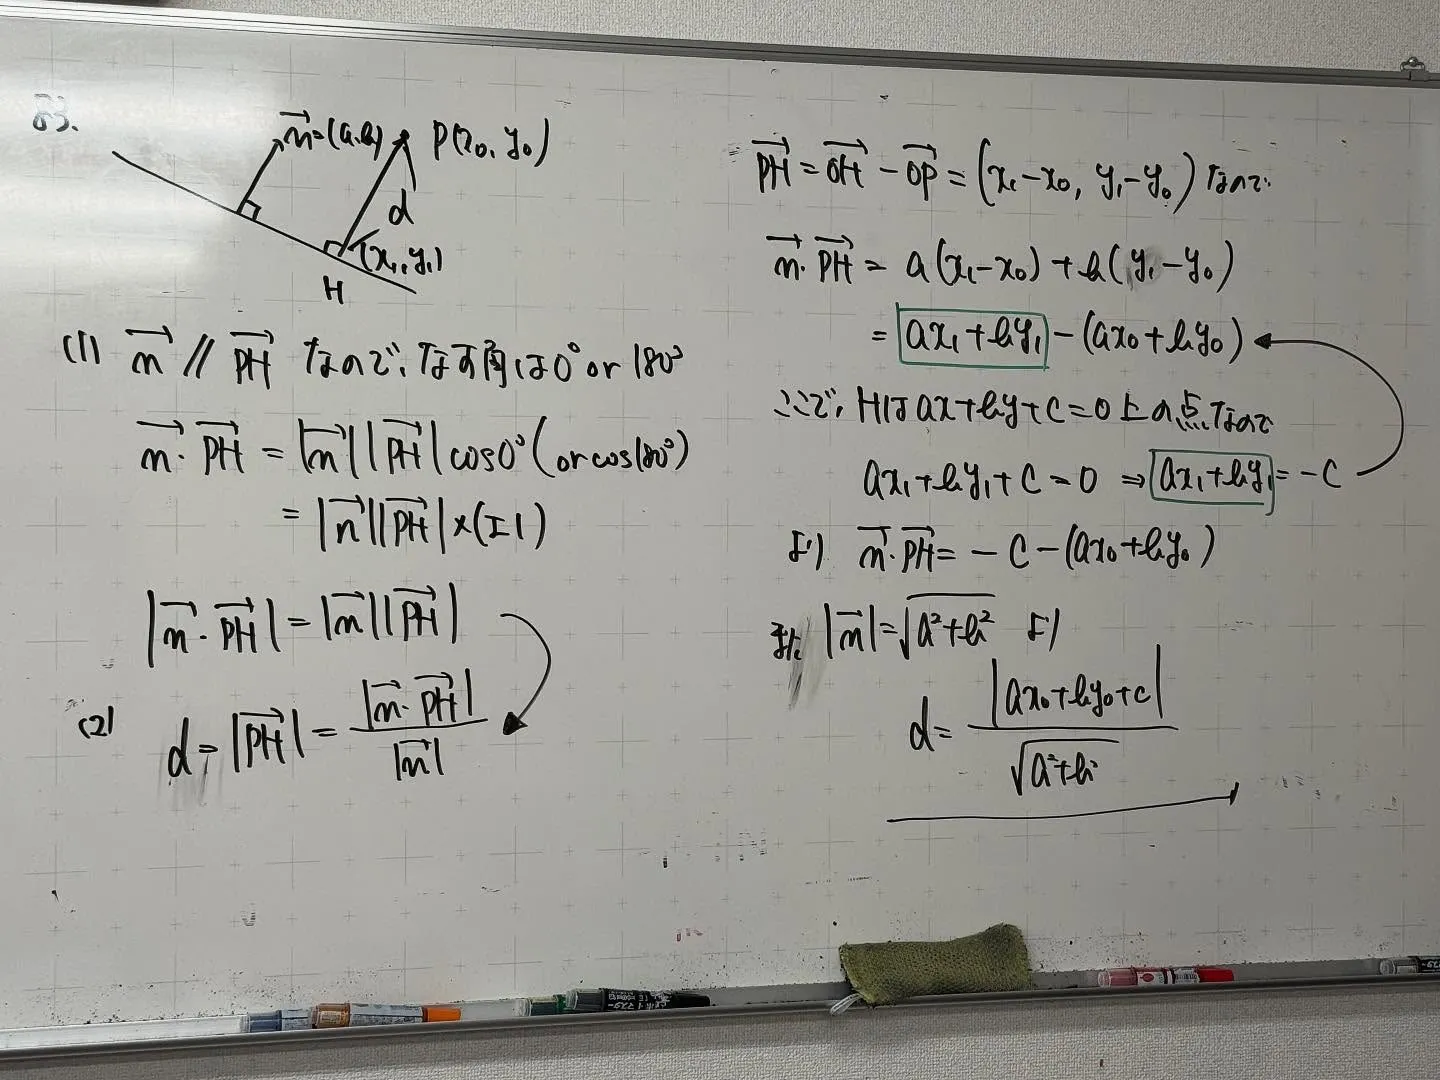 83.
n⃗=(a,b) P(x₀, y₀)
d
(x₁, y₁)
H
(1) n⃗ // PH⃗ なので、なす角は0° or 180°
n⃗・PH⃗ = |n⃗||PH⃗|cos0° (or cos180°)
= |n⃗||PH⃗|×(±1)
|n⃗・PH⃗| = |n⃗||PH⃗|
(2) d = |PH⃗| = |n⃗・PH⃗| / |n⃗|
PH⃗ = OH⃗ - OP⃗ = (x₁-x₀, y₁-y₀) なので
n⃗・PH⃗ = a(x₁-x₀)+b(y₁-y₀)
= ax₁+by₁-(ax₀+by₀)
ここで、Hはax+by+c=0上の点なので
ax₁+by₁+c=0 ⇒ ax₁+by₁=-c
より n⃗・PH⃗ = -c-(ax₀+by₀)
また |n⃗|=√(a²+b²) より
d = |ax₀+by₀+c| / √(a²+b²)